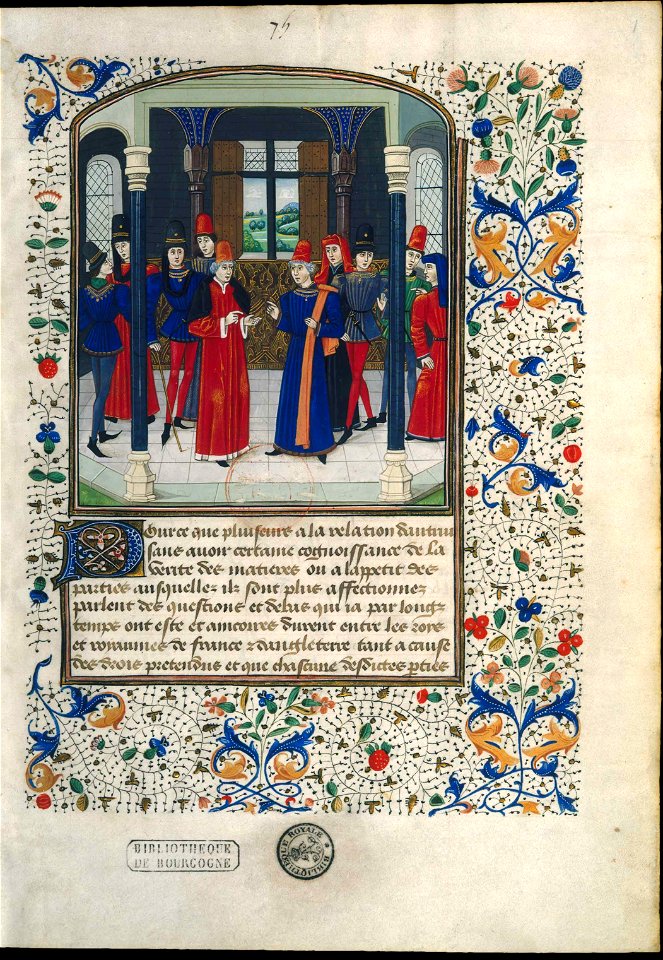 75
1
Pource que pluiseurs a la relation dautrui
sans auoir certaine cognoissance de la
Verite des matieres ou a lappetit des
parties ausquellez ilz sont plus affectionnez
parlent des questions et debas qui ia par longz
temps ont este et ancores durent entre les roys
et royaumes de france & dangleterre tant a cause
des drois pretendus et que chascune desdictes parties
BIBLIOTHEQUE
DE BOURGOGNE
BIBLIOTHÈQUE ROYALE